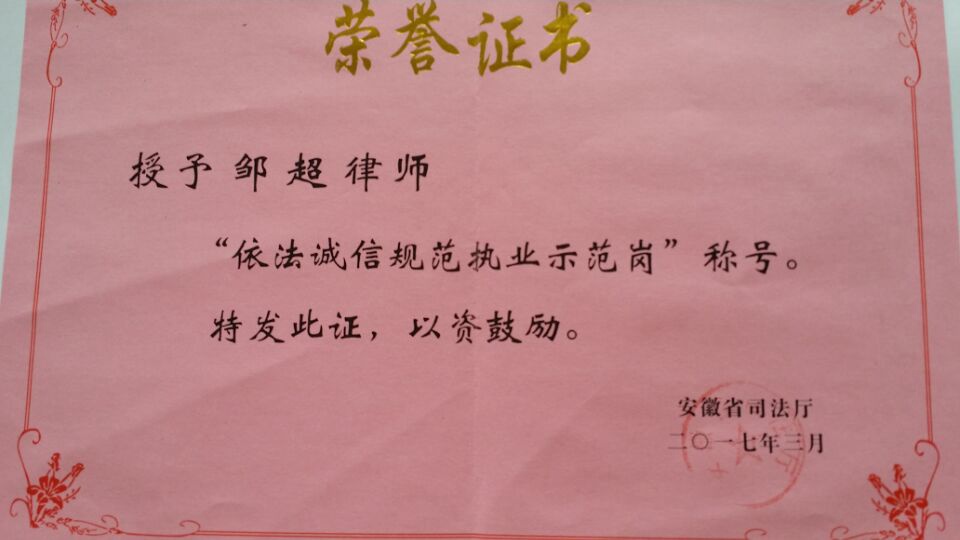 荣誉证书
授予邹超律师
“依法诚信规范执业示范岗”称号。
特发此证，以资鼓励。
安徽省司法厅
二〇一七年三月